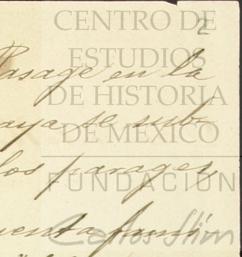 2
CENTRO DE
ESTUDIOS
DE HISTORIA
DE MÉXICO
FUNDACIÓN
Carlos Slim
Pasage en la
aya se sub-
los parages,